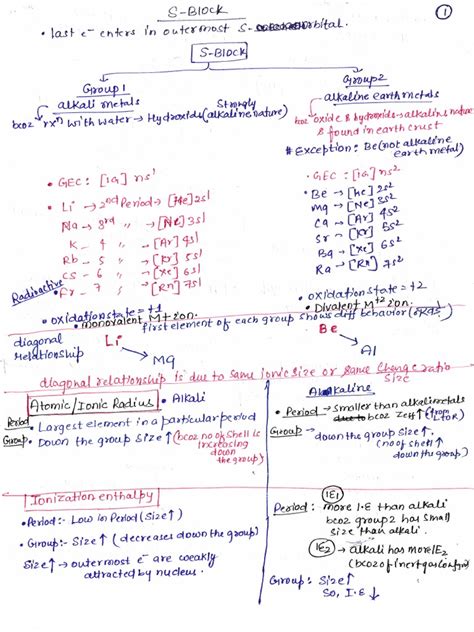 S-BLOCK
①
• last e⁻ enters in outermost S- orbital.
S-BLOCK
Group 1
alkali metals
bcoz rxⁿ with water → Hydroxids (Strongly alkaline nature)
Group 2
alkaline earth metals
bcoz oxide & hydroxids → alkalins nature
& found in earth crust
# Exception: Be (not alkaline earth metal)
• GEC : [IG] ns¹
• Li → 2nd Period → [He] 2s¹
Na → 3rd " → [Ne] 3s¹
K – 4 " – [Ar] 4s¹
Rb – 5 " – [Kr] 5s¹
Cs – 6 " – [Xe] 6s¹
Radioactive
Fr – 7 " – [Rn] 7s¹
• oxidation state = +1
• monovalent M+ ion.
• GEC : [IG] ns²
• Be → [He] 2s²
Mg → [Ne] 3s²
Ca → [Ar] 4s²
Sr → [Kr] 5s²
Ba → [Xe] 6s²
Ra → [Rn] 7s²
• oxidation state = +2
• Divalent M+2 ion.
first element of each group shows diff behavior
diagonal relationship
Li
Mg
Be
Al
diagonal relationship is due to same ionic size or same charge ratio
size
Atomic/Ionic Radius
• Alkali
Period
• Largest element in a particular period
Group
• Down the group size ↑ (bcoz no of shell is increasing down the group)
Alkaline
• Period → smaller than alkali metals
bcoz Zeff ↑ (from L to R)
Group → down the group size ↑
(no of shell ↑ down the group)
Ionization enthalpy
• Period:- Low in Period (size ↑)
• Group:- Size ↑ (decreases down the group)
Size ↑ → outermost e⁻ are weakly
attracted by nucleus.
IE1
Period: more I.E than alkali
bcoz group 2 has small
size than alkali.
IE2 → alkali has more IE2
(bcoz of inert gas config)
Group: Size ↑
So, I.E ↓